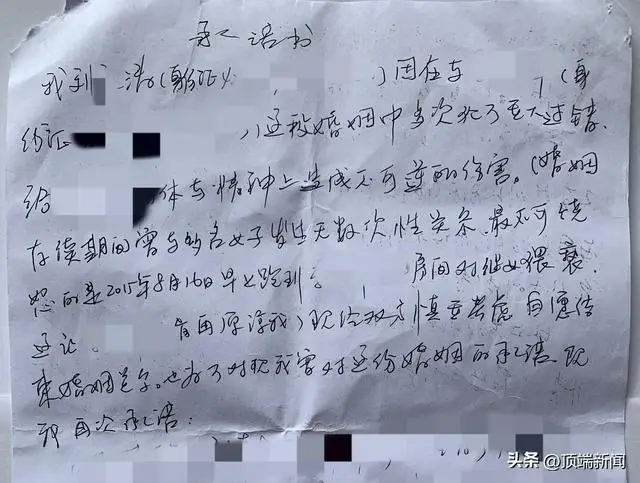 承诺书
我刘 清(身份证 )因在与 (身
份证 )这段婚姻中多次犯了重大过错.
给 体与精神上造成不可逆的伤害。(婚姻
存续期间曾与多名女子发生无数次性关系.最不可饶
恕的是2015年8月16日早上跑到 房间对继女猥亵.
再原谅我)现经双方慎重考虑自愿结
束婚姻关系.也为了对 我曾对这份婚姻的承诺.现
我再次承诺:
头条 @顶端新闻